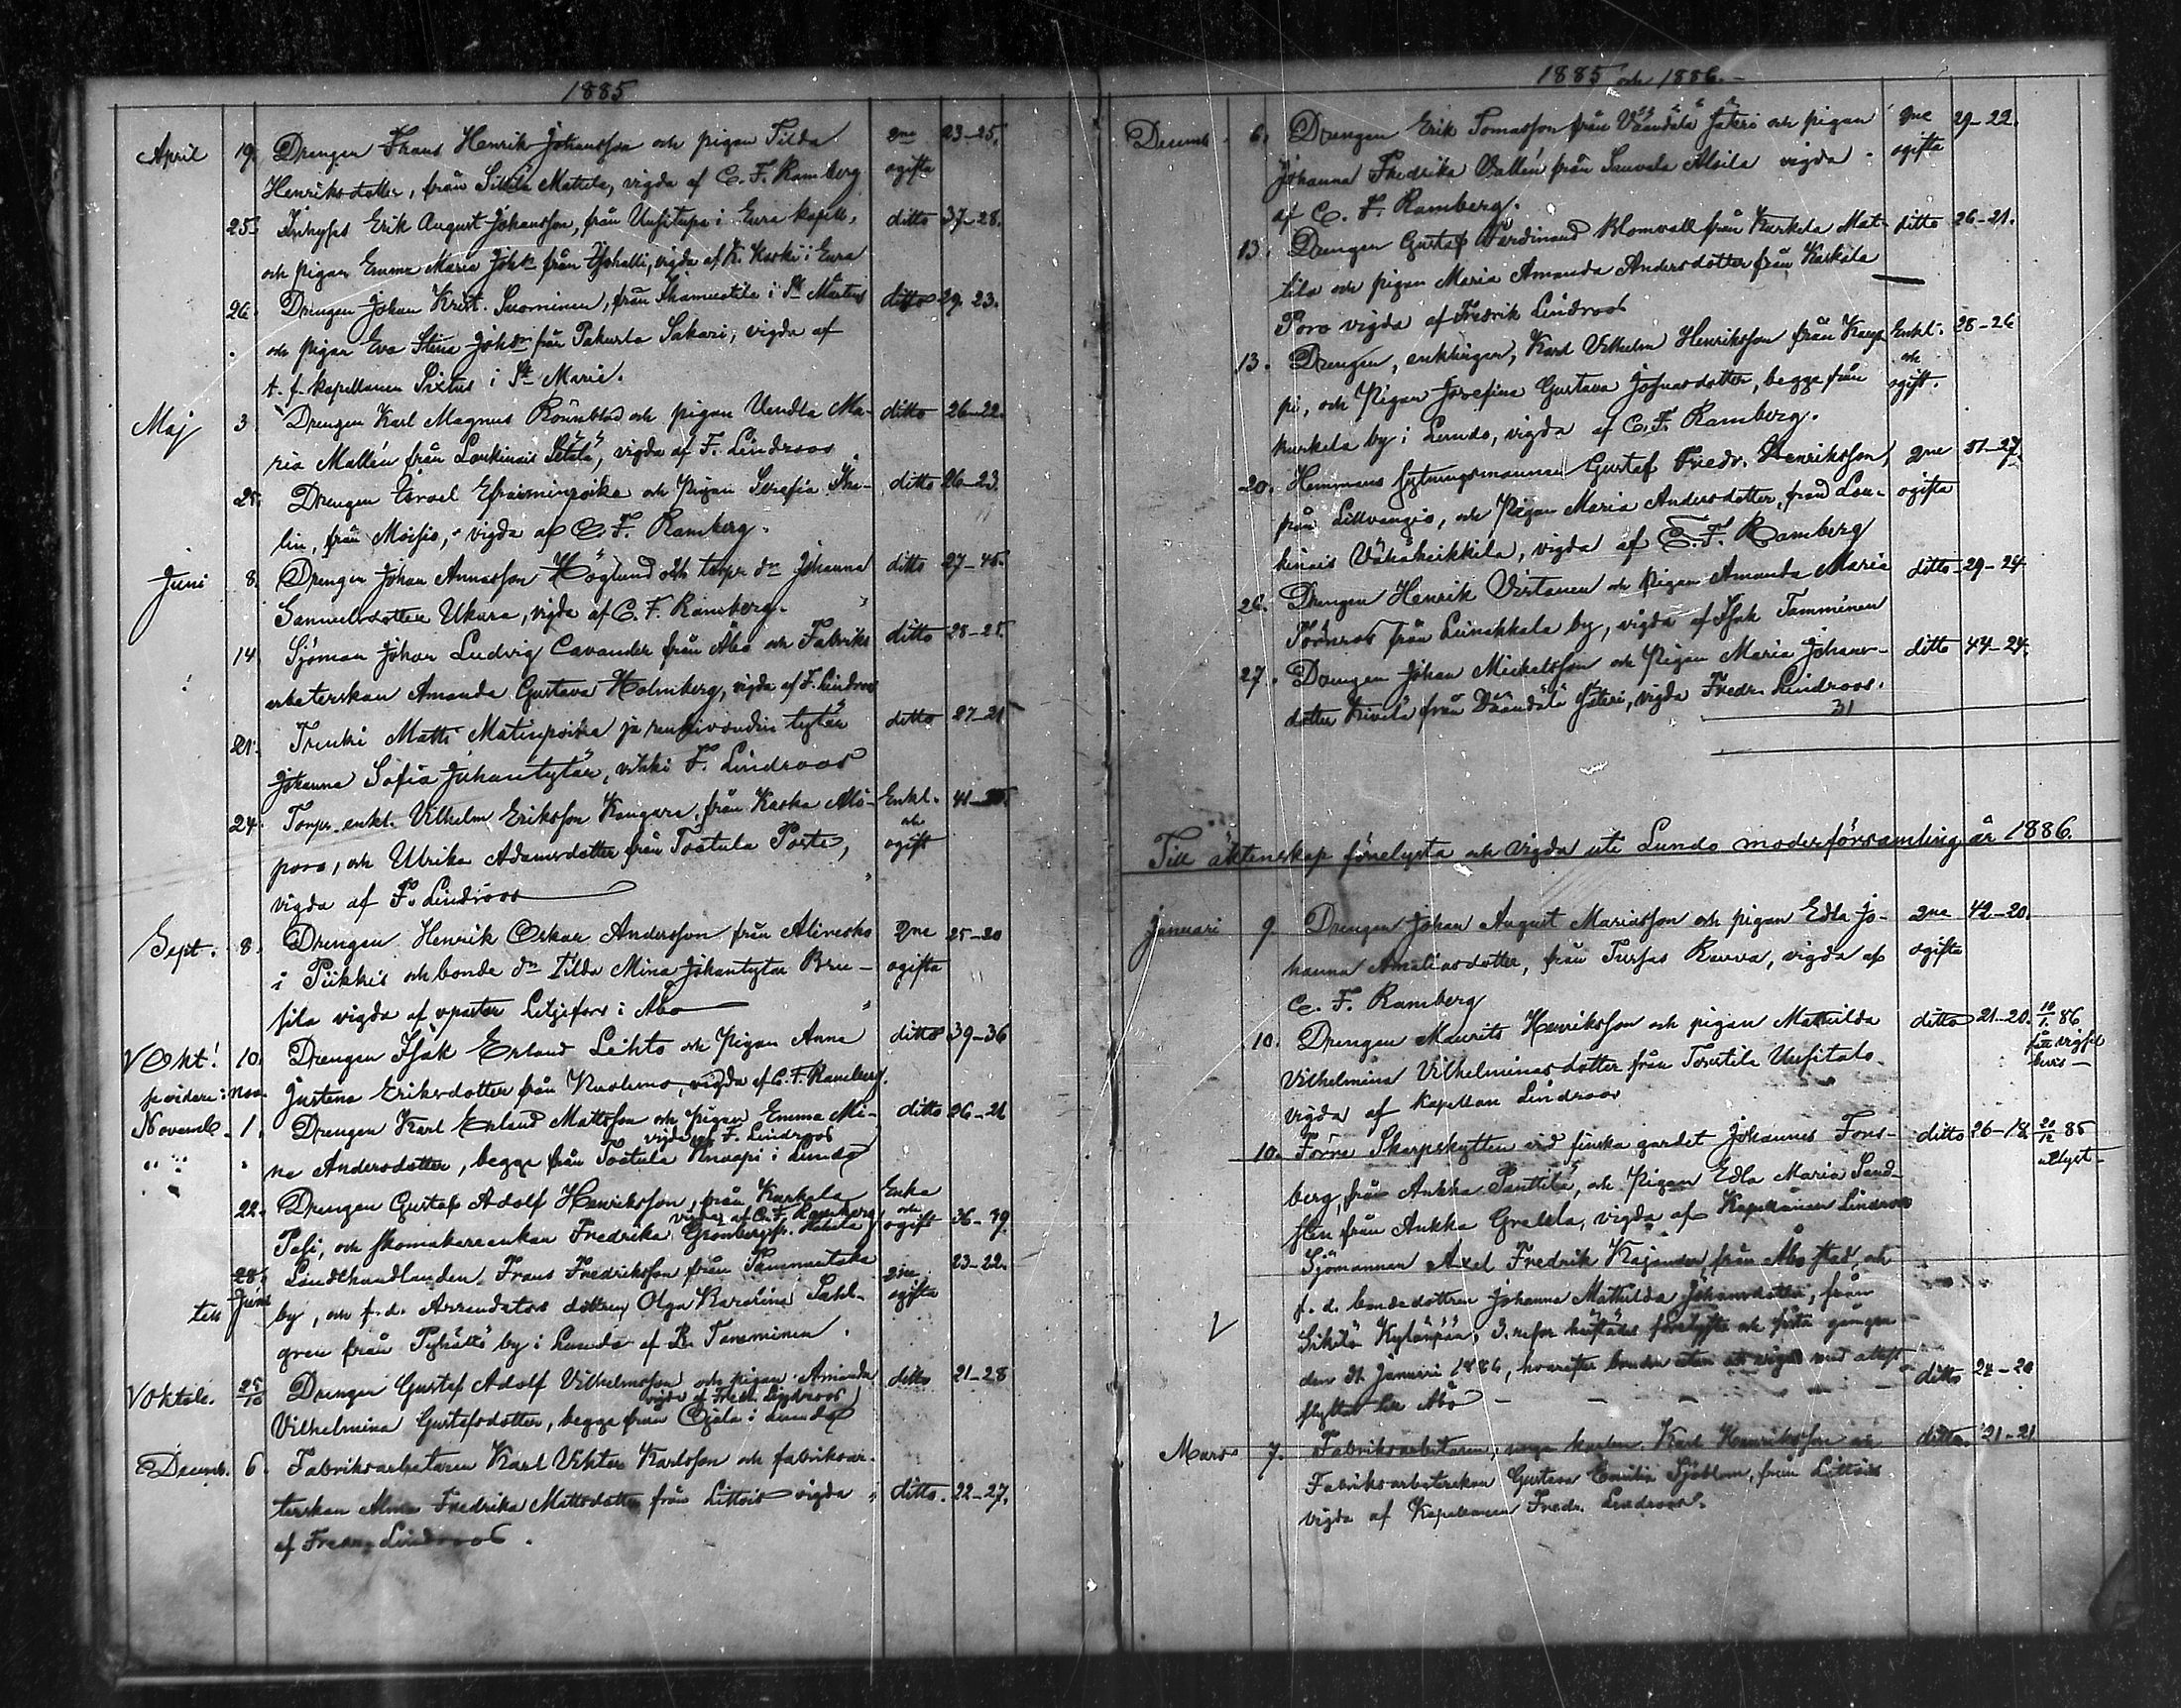 1885
April 19. Drengen Frans Henrik Johansson och pigan Tilda 2ne 23-25.
Henriksdotter, från Sillilä Mattela, vigda af C. F. Ramberg ogifta
25. Inhyses Erik August Johansson, från Uusitupa i Eura kapell, ditto 37-28.
och pigan Emma Maria Johdr från, vigda af K. Koski i Eura
26. Drengen Johan Krist. Suominen, från i St Mårtens ditto 29. 23.
och pigan Eva Stina Johdr från Pakurla Sakari, vigda af
t. f. kapellanen Sixtus i St Marie.
Maj 3. Drengen Karl Magnus Rönnblad och pigan Vendla Ma- ditto 26-22.
ria Mallén från Loukinais Sätälä, vigda af F. Lindroos
25. Drengen Israel Efraiminpoika och Pigan Serafia ditto 26-23.
lin, från Moisio, vigda af C. F. Ramberg.
Juni 8. Drengen Johan Annasson Höglund och torp. dr Johanna ditto 27-45.
Samuelsdotter Ukura, vigda af C. F. Ramberg.
14. Sjöman Johan Ludvig Cavander från Åbo och Fabriks ditto 28-25.
arbeterskan Amanda Gustava Holmberg, vigda af F. Lindroos
21. Trenki Matti Matinpoika ja tytär ditto 27-21
Johanna Sofia Juhantytär, vihki F. Lindroos
24. Torpr. enkl. Vilhelm Eriksson Kangare, från Kaska Ali- Enkl. 41-
poro, och Ulrika Adamsdotter från Toatula Posti, och ogift
vigda af F. Lindroos
Sept. 8. Drengen Henrik Oskar Andersson från 2ne 25-20
i Piikkis och bonde dr Tilda Mina Johantytär Bru- ogifta
sila vigda af v pastor Liljefors i Åbo
V Okt! 10. Drengen Isak Erland Lehto och Pigan Anna ditto 39-36
se vidare i nov. Justina Eriksdotter från Kuolemo, vigda af C. F. Ramberg.
Novemb. 1. Drengen Karl Erland Mattsson och Pigan Emma Mi- ditto 26-21
vigda af F. Lindroos
na Andersdotter, begge från Toatula Knaapi i Lundo
22. Drengen Gustaf Adolf Henriksson, från Kurkela Enka
vigda af C. F. Ramberg och
Pasi, och skomakareenkan Fredrika Grönberg fr. ogift 36-39.
28. Landthandlanden Frans Fredriksson från Tammentaka 2ne 23-22.
till Juni by, och f. d. Arrendators dottren Olga Karolina Sahl- ogifta
gren från Pyhältö by i Lundo af R. Tamminen.
V Oktob. 25/10 Drengen Gustaf Adolf Vilhelmsson och pigan Amanda ditto 21-28
vigda af Fredr. Lindroos
Vilhelmina Gustafsdotter, begge från Ojala i Lundo
Decemb. 6. Fabriksarbetaren Karl Viktor Karlsson och fabriksar-
terskan Alma Fredrika Mattsdotter från Littois vigda ditto. 22-27.
af Fredr. Lindroos.
1885 och 1886.
Decemb. 6. Drengen Erik Tomasson från Väändälä Jäkri och pigan 2ne 29-22.
Johanna Fredrika Vallén från Sauvala Alsila vigda ogifta
af C. F. Ramberg.
13. Drengen Gustaf Ferdinand Blomvall från Kurkela Mat- ditto 26-21.
tila och pigan Maria Amanda Andersdotter från Karkala
Poro vigda af Fredrik Lindroos
13. Drengen, enklingen, Karl Vilhelm Henriksson från Kaup- Enkl. 28-26
pi, och Pigan Josefina Gustava Josuasdotter, begge från och ogift.
Kurkela by i Lundo, vigda af C. F. Ramberg.
20. Hemmans sytningsmannen Gustaf Fredr. Henriksson, 2ne 31-27.
från Lillvangio, och Pigan Maria Andersdotter, från Lou- ogifta
kinais Vähäheikkilä, vigda af C. F. Ramberg
26. Drengen Henrik Virtanen och Pigan Amanda Maria ditto 29-24
Törnroos från Liinakkala by, vigda af Isak Tamminen
27. Drengen Johan Mickelsson och Pigan Maria Johans- ditto 44-24.
dotter Kivelä från Väändälä Säteri, vigda Fredr. Lindroos.
31
Till äktenskap förelysta och vigda uti Lundo moderförsamling år 1886.
Januari 9 Drengen Johan August Mariasson och pigan Edla Jo- 2ne 42-20.
hanna Amaliasdotter, från Tursas Ravva, vigda af ogifta
C. F. Ramberg
10. Drengen Maurits Henriksson och pigan Mathilda ditto 21-20. 10/1. 86
Vilhelmina Vilhelminasdotter från Torstila Uusitalo fått vigsel bevis
vigda af Kapellan Lindroos
10. Förre Skarpskytten vid finska gardet Johannes Fors- ditto 26-18. 20/12 85
berg, från Ankka Panttila, och Pigan Edla Maria Sand- utlyst
sten från Ankka Grelila, vigda af Kapellanen Lindroos
Sjömannen Axel Fredrik Kajander från Åbo stad, och
f. d. bondedottren Johanna Mathilda Johansdotter, från
V Sikilä Kylänpää, förelysta och första gången
den 31 Januari 1886, hvarefter bruden utan att vigas med attest
flyttat till Åbo ditto 24-20
Mars 7. Fabriksarbetaren, unga karlen Karl Henriksson och ditto. 21-21
Fabriksarbeterskan Gustava Emilia Sjöblom, från Littois
vigda af Kapellanen Fredr. Lindroos.